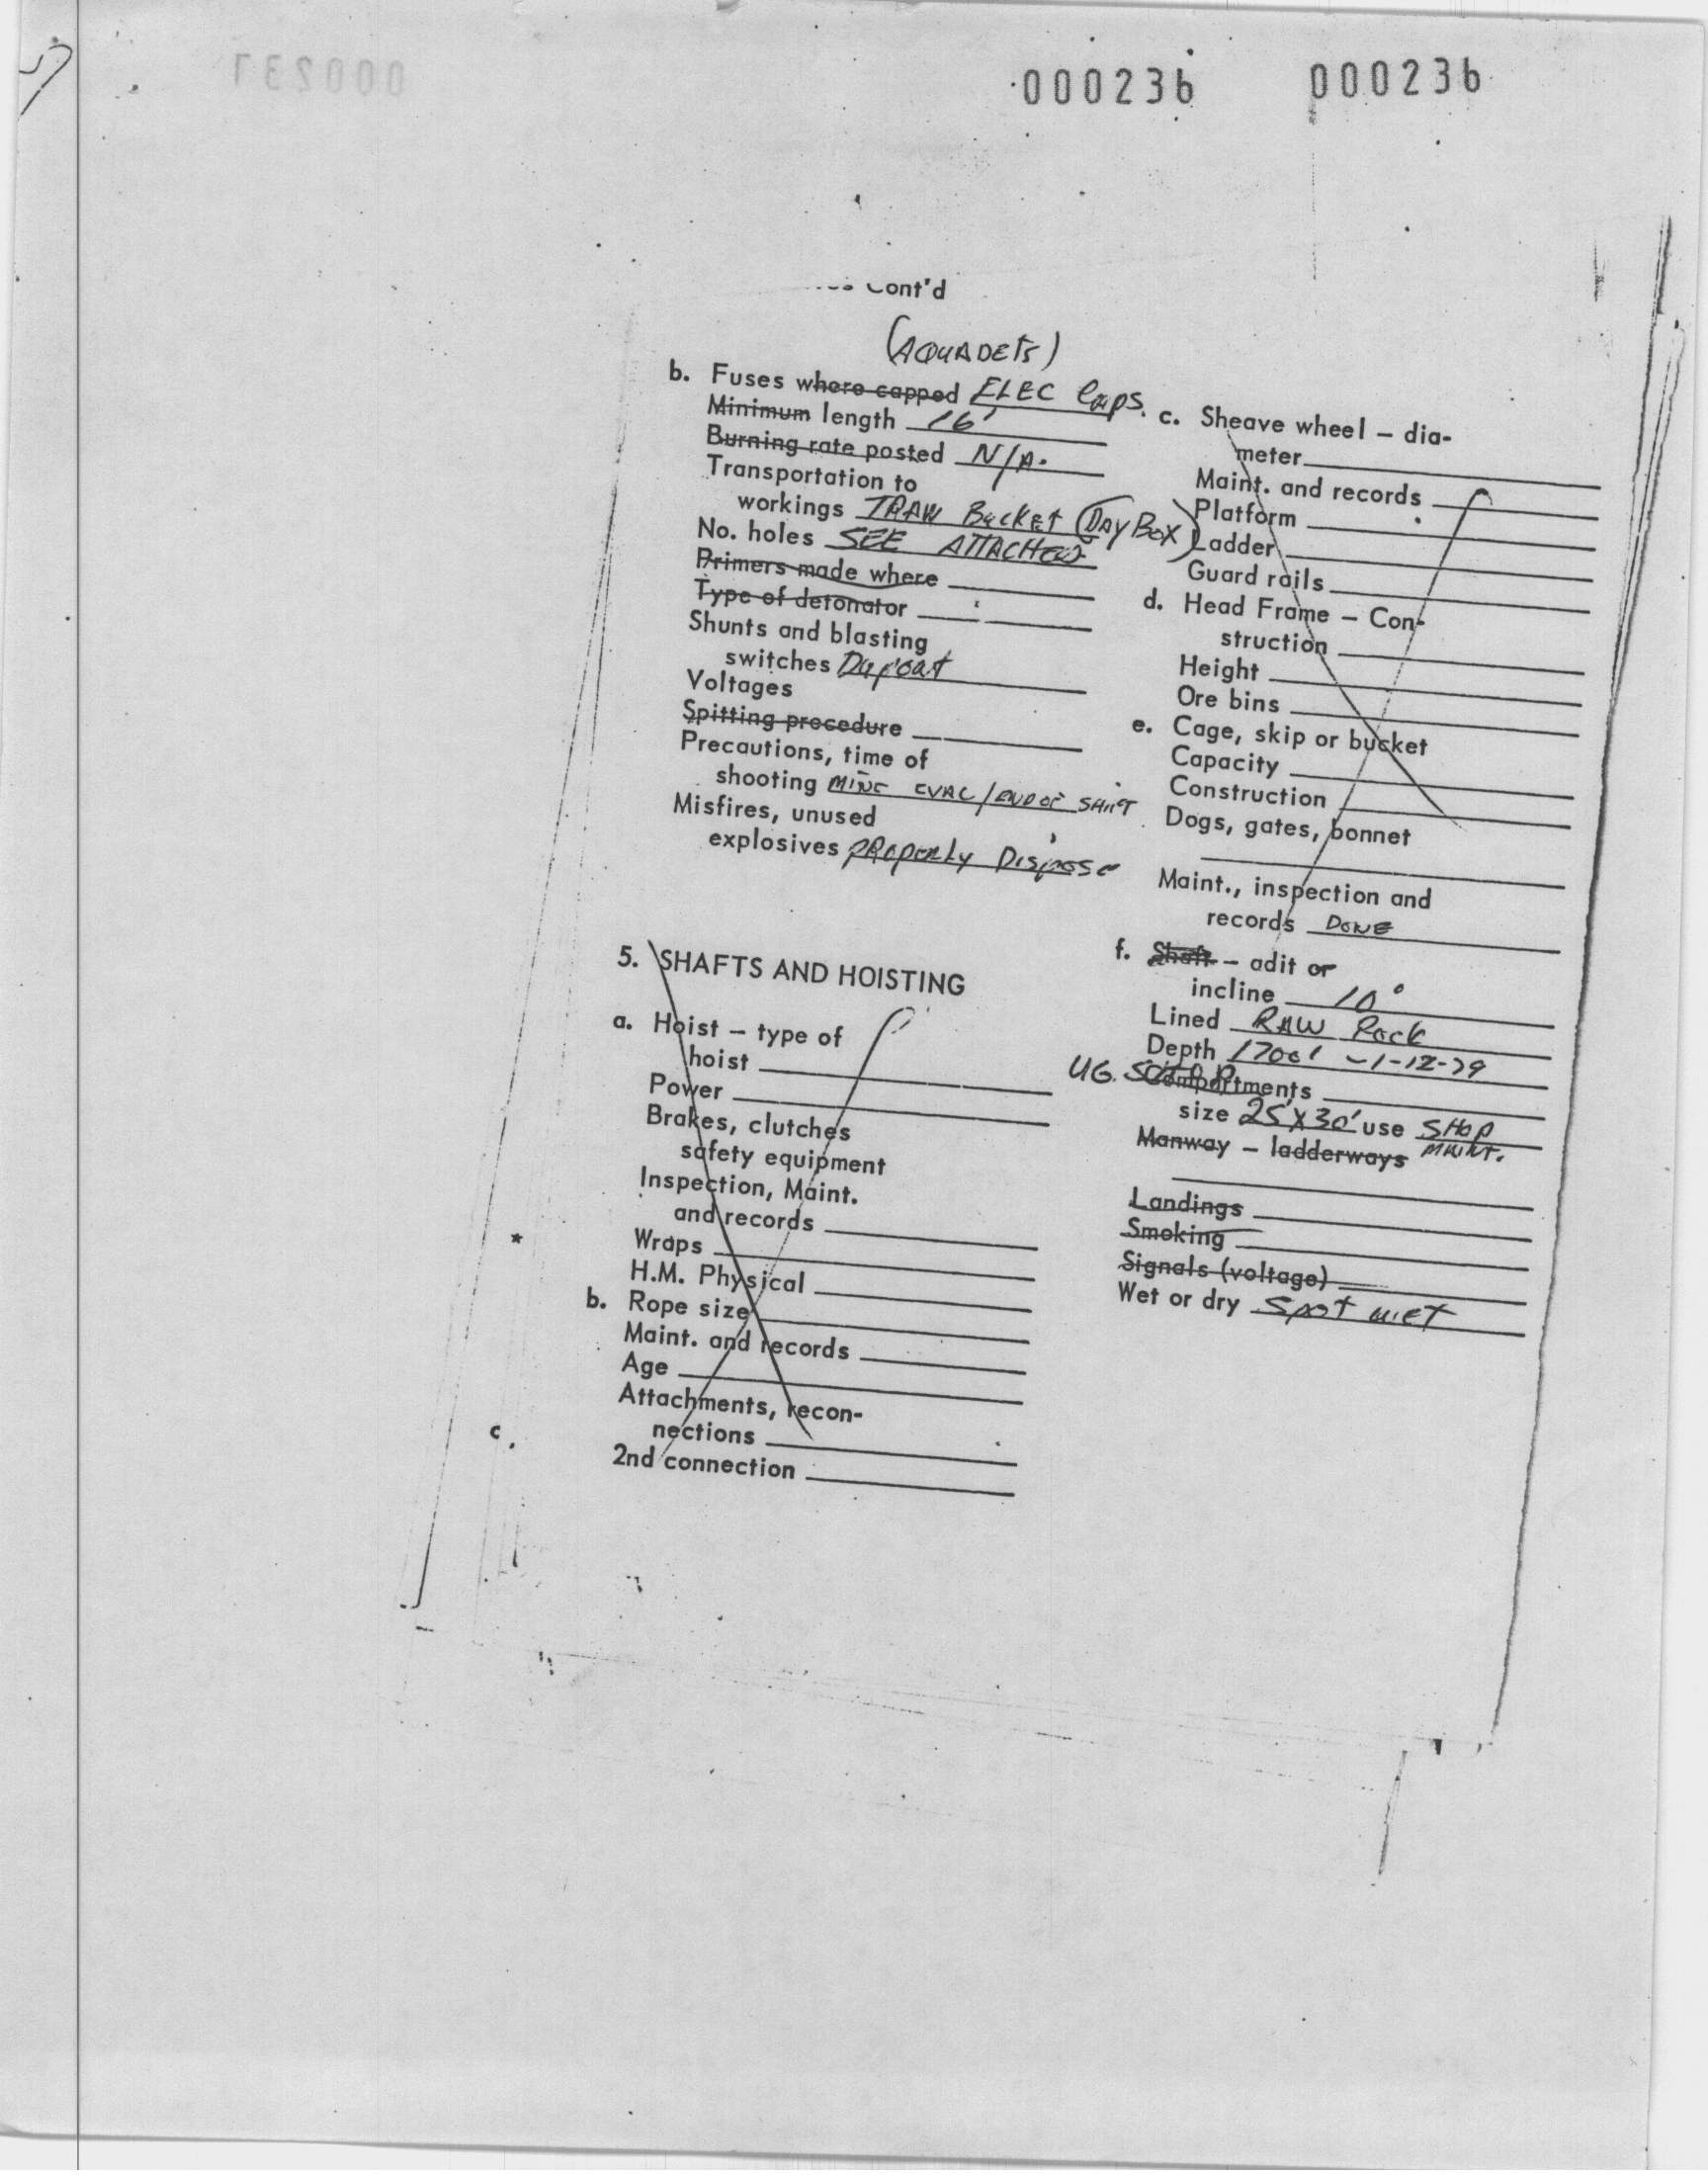 000236 000236
Cont'd
(AQUADETS)
b. Fuses where capped ELEC Caps.
Minimum length 16'
Burning rate posted N/A.
Transportation to
workings TRAW Bucket (DAY BOX)
No. holes SEE ATTACHED
Primers made where
Type of detonator
Shunts and blasting
switches Dupont
Voltages
Spitting procedure
Precautions, time of
shooting MINE EVAC/END OF SHIFT
Misfires, unused
explosives PROPERLY DISPOSE
5. SHAFTS AND HOISTING
a. Hoist – type of
hoist
Power
Brakes, clutches
safety equipment
Inspection, Maint.
and records
Wraps
H.M. Physical
b. Rope size
Maint. and records
Age
Attachments, recon-
nections
2nd connection
c. Sheave wheel – dia-
meter
Maint. and records
Platform
Ladder
Guard rails
d. Head Frame – Con-
struction
Height
Ore bins
e. Cage, skip or bucket
Capacity
Construction
Dogs, gates, bonnet
Maint., inspection and
records DONE
f. Shaft – adit or
incline 10°
Lined RAW Rock
Depth 1700' -1-12-79
UG. SHOP Compartments
size 25'X30' use SHOP
Manway – ladderways MAINT.
Landings
Smoking
Signals (voltage)
Wet or dry SPOT WET